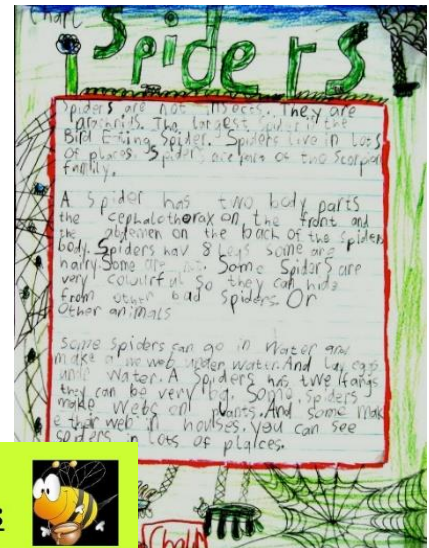 Chart
Spiders
Spiders are not insects. They are
arachnids. The largest spider is the
Bird Eating Spider. Spiders live in Lots
of places. Spiders are part of the scorpion
family.
A spider has two body parts
the cephalothorax on the front and
the abdemen on the back of the spiders
body. Spiders hav 8 Legs some are
hairy. Some are not. Some Spiders are
very colourful so they can hide
from other bad spiders. Or
Other animals
Some spiders can go in water and
make a web under water. And lay eggs
under water. A Spiders has two fangs
they can be very big. Some spiders
make webs on plants. And some mak
e thar web in houses. you can see
spiders in lots of places.